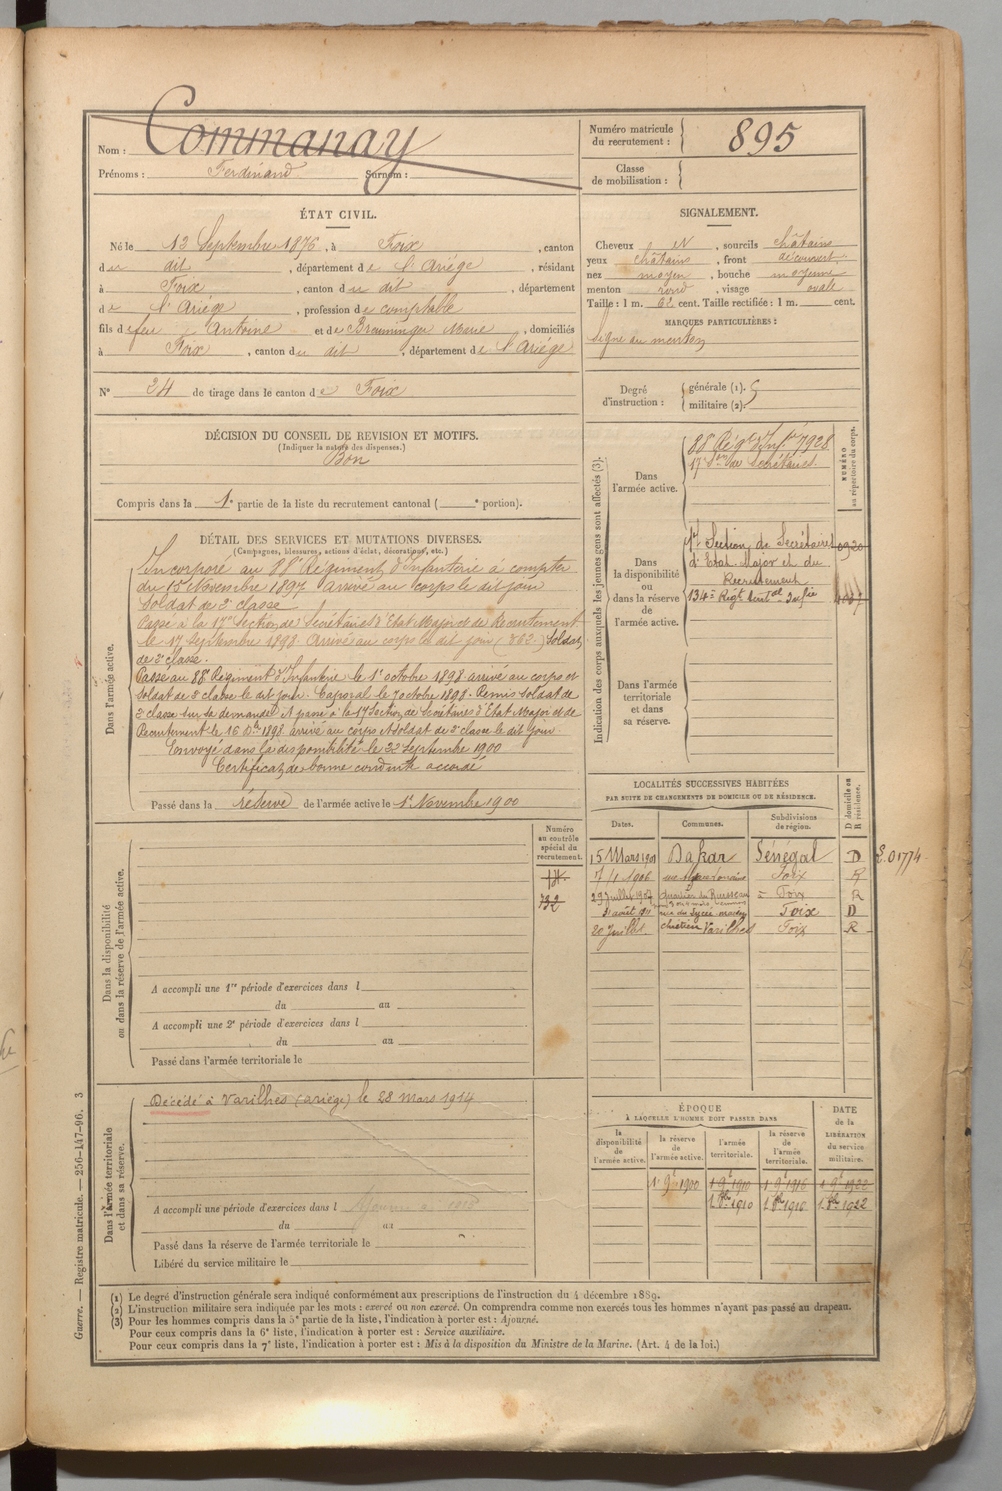 Nom : Commanay
Prénoms : Ferdinand Surnom :
Numéro matricule
du recrutement : 895
Classe
de mobilisation :
ÉTAT CIVIL.
Né le 13 Septembre 1876, à Foix, canton
du dit, département de l'Ariège, résidant
à Foix, canton du dit, département
de l'Ariège, profession de comptable
fils de feu Antoine et de Breuninger Marie, domiciliés
à Foix, canton du dit, département de l'Ariège
N° 24 de tirage dans le canton de Foix
SIGNALEMENT.
Cheveux N, sourcils châtains
yeux châtains, front découvert
nez moyen, bouche moyenne
menton rond, visage ovale
Taille : 1 m. 62 cent. Taille rectifiée : 1 m. cent.
MARQUES PARTICULIÈRES :
Signe au menton
Degré
d'instruction :
générale (1). 3
militaire (2).
DÉCISION DU CONSEIL DE REVISION ET MOTIFS.
(Indiquer la nature des dispenses.)
Bon
Compris dans la 1e partie de la liste du recrutement cantonal ( e portion).
DÉTAIL DES SERVICES ET MUTATIONS DIVERSES.
(Campagnes, blessures, actions d'éclat, décorations, etc.)
Dans l'armée active.
Incorporé au 88e Régiment d'Infanterie à compter
du 15 Novembre 1897 arrivé au corps le dit jour
Soldat de 2e classe
Passé à la 17e Section de Secrétaires d'Etat Major et de Recrutement
le 17 Septembre 1898. Arrivé au corps le dit jour (862.) Soldat
de 2e classe.
Passé au 88e Régiment d'Infanterie le 1er octobre 1898 arrivé au corps et
Soldat de 2e classe le dit jour. Caporal le 7 octobre 1898. Remis Soldat de
2e classe sur sa demande et passé à la 17e Section de Secrétaires d'Etat Major et de
Recrutement le 16 Dbre 1898 arrivé au corps et Soldat de 2e classe le dit jour.
Envoyé dans la disponibilité le 22 Septembre 1900
Certificat de bonne conduite accordé
Passé dans la réserve de l'armée active le 1er Novembre 1900
Indication des corps auxquels les jeunes gens sont affectés (3).
NUMÉRO
au répertoire du corps.
Dans
l'armée active.
88 Régt d'Infie 7928
17e Son de Secrétaires.
Dans
la disponibilité
ou
dans la réserve
de
l'armée active.
Section de Secrétaires 0920
d'Etat Major et du
Recrutement
134e Regt Infie
Dans l'armée
territoriale
et dans
sa réserve.
LOCALITÉS SUCCESSIVES HABITÉES
PAR SUITE DE CHANGEMENTS DE DOMICILE OU DE RÉSIDENCE.
D domicile ou
R résidence.
Dates. Communes. Subdivisions
de région.
15 Mars 1901 Dakar Sénégal D S. 01774
1906 Foix R
29 Juillet 1907 Foix R
Foix D
20 Juillet Varilhes Foix R
Dans la disponibilité
ou dans la réserve de l'armée active.
Numéro
au contrôle
spécial du
recrutement.
732
A accompli une 1re période d'exercices dans l
du au
A accompli une 2e période d'exercices dans l
du au
Passé dans l'armée territoriale le
Dans l'armée territoriale
et dans sa réserve.
Décédé à Varilhes (ariège) le 28 mars 1914
A accompli une période d'exercices dans l
du au
Passé dans la réserve de l'armée territoriale le
Libéré du service militaire le
ÉPOQUE
À LAQUELLE L'HOMME DOIT PASSER DANS
DATE
de la
LIBÉRATION
du service
militaire.
la
disponibilité
de
l'armée active.
la réserve
de
l'armée active.
l'armée
territoriale.
la réserve
de
l'armée
territoriale.
1er 9bre 1900 1 9e 1910 1 9e 1916 1 9e 1922
1 8bre 1910 1 8bre 1916 1 8bre 1922
(1) Le degré d'instruction générale sera indiqué conformément aux prescriptions de l'instruction du 4 décembre 1889.
(2) L'instruction militaire sera indiquée par les mots : exercé ou non exercé. On comprendra comme non exercés tous les hommes n'ayant pas passé au drapeau.
(3) Pour les hommes compris dans la 5e partie de la liste, l'indication à porter est : Ajourné.
Pour ceux compris dans la 6e liste, l'indication à porter est : Service auxiliaire.
Pour ceux compris dans la 7e liste, l'indication à porter est : Mis à la disposition du Ministre de la Marine. (Art. 4 de la loi.)
Guerre. — Registre matricule. — 256-147-96. 3